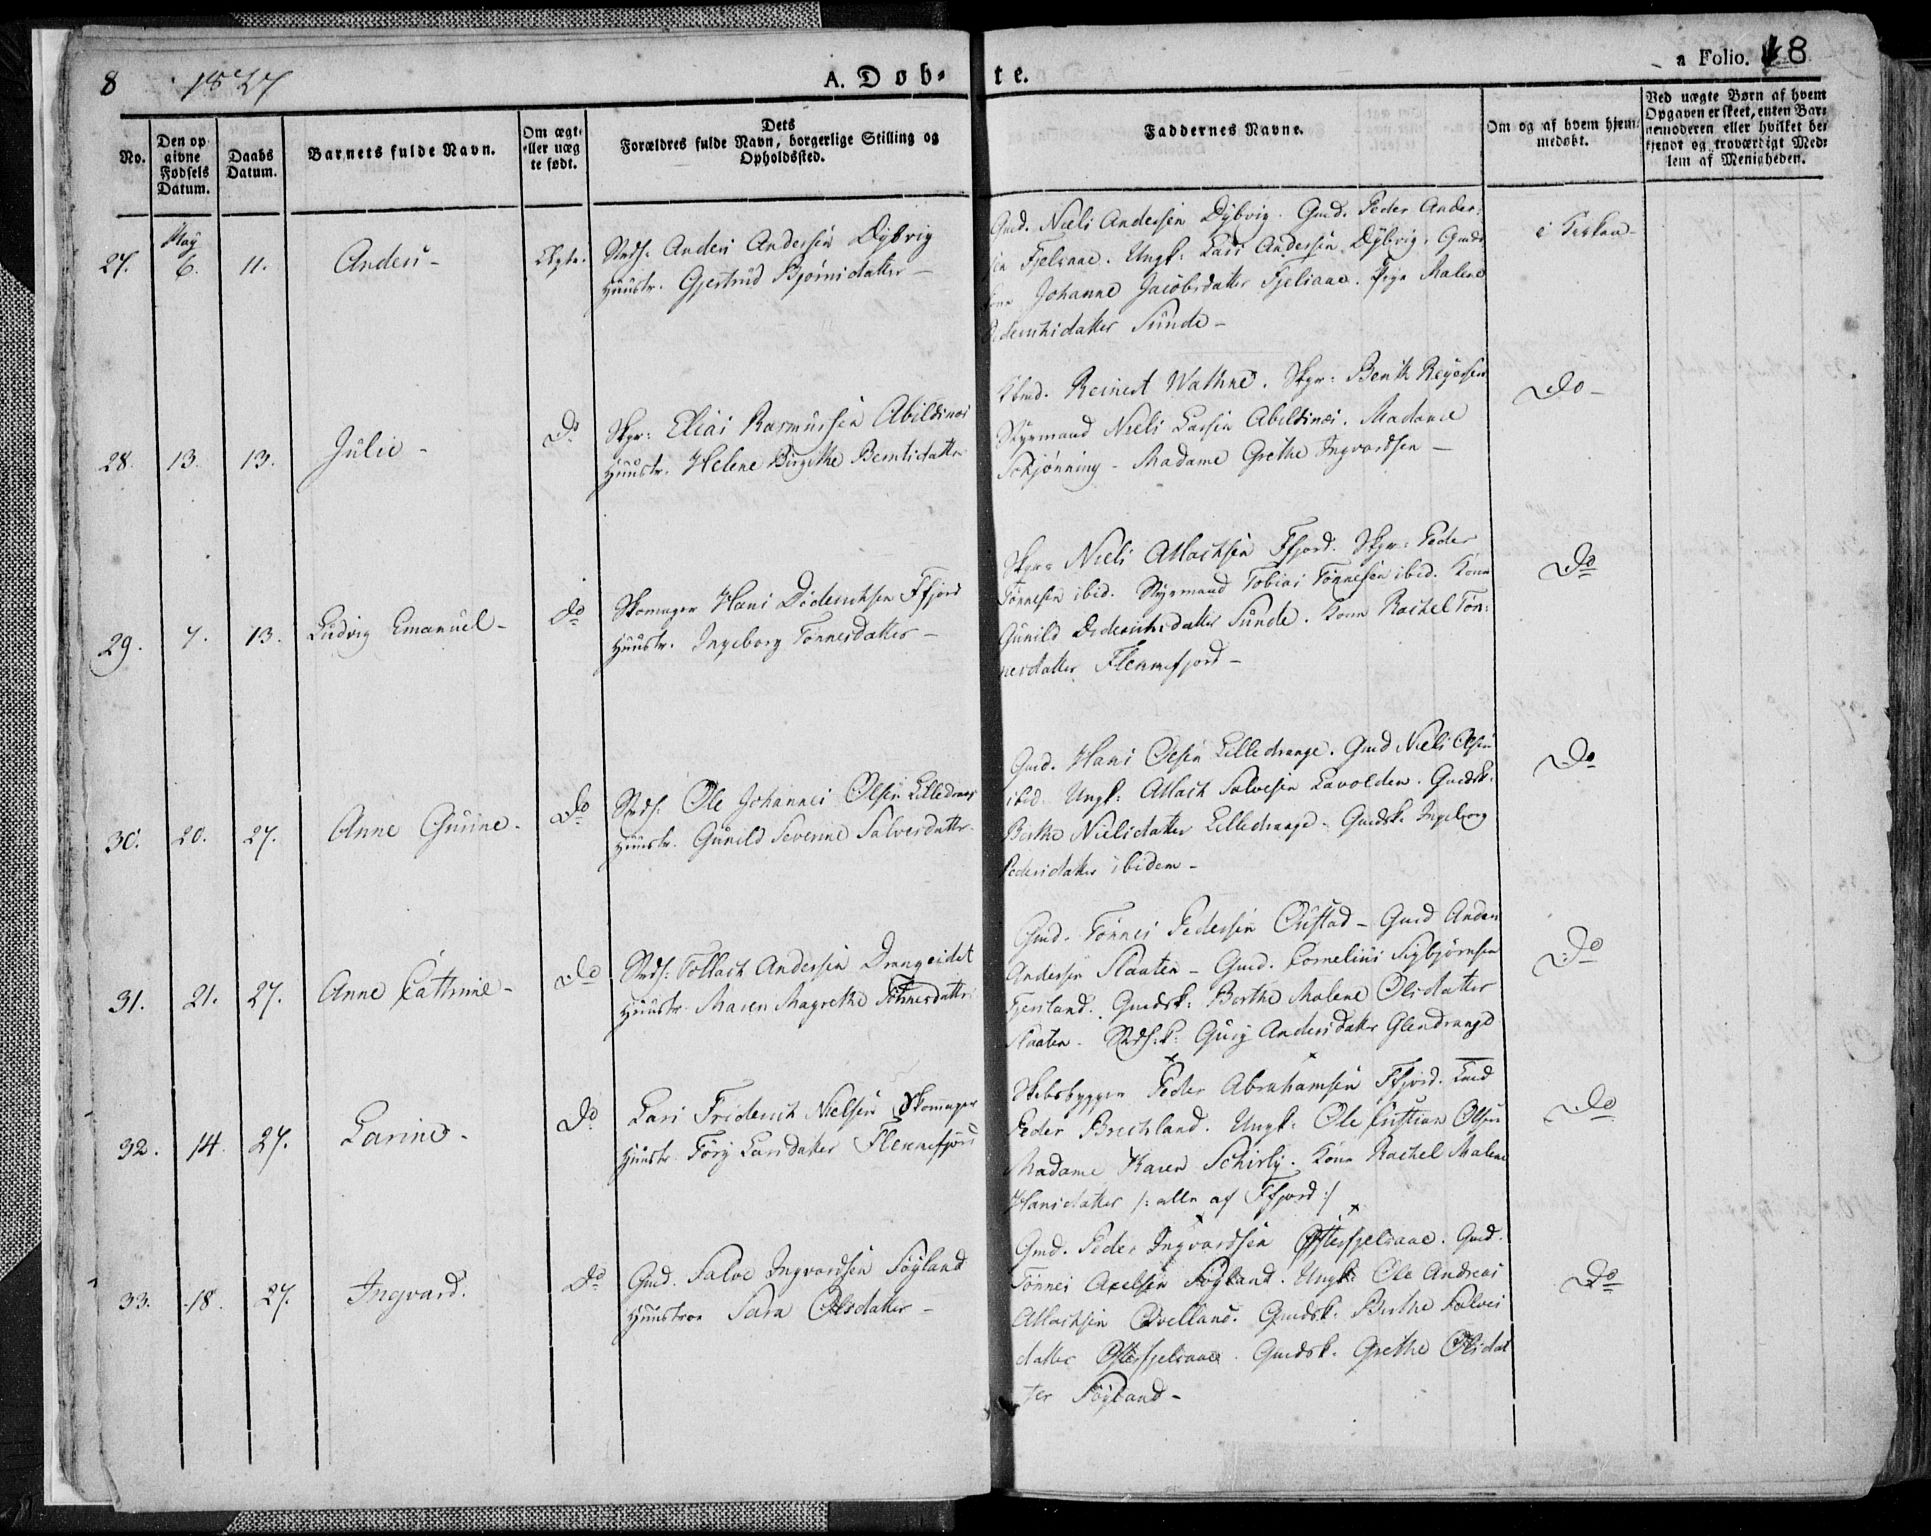 8 1827 A. Døb-
te. a Folio. 8
No.
Den op
givne
Fødsels
Datum.
Daabs
Datum.
Barnets fulde Navn.
Om ægte
eller uæg
te født.
Dets
Forældres fulde Navn, borgerlige Stilling og
Opholdssted.
Faddernes Navne.
Om og af hvem hjem-
medøbt.
Ved uægte Børn af hvem
Opgaven er skeet, enten Bar-
nemoderen eller hvilket be-
kjendt og troværdigt Med-
lem af Menigheden.
May
27. 6. 11. Anders - Ægte. Strds: Anders Andersen Dybvig
Huustr. Gjertrud Bjørnsdatter -
Gmd. Niels Andersen Dybvig. Gmd. Peder Ander-
sen Fjelsaae. Ungk: Lars Andersen Dybvig. Gmds
kone Johanne Jacobsdatter Fjelsaae. Pige Malene
Diderichsdatter Sunde -
i Kirken -
28. 13. 13. Julie - Do Skpr: Elias Rasmussen Abildsnæs
Huustr. Helene Birgithe Berntsdatter
Kbmd. Reinert Wathne. Skpr: Bernth Reyersen
Styrmand Niels Larsen Abildsnæs. Madame
Schjønning - Madame Grethe Ingvardsen -
Do -
29. 7. 13. Ludvig Emanuel - Do Skomager Hans Diderichsen Ffjord
Huustr. Ingeborg Tønnesdatter -
Skpr: Niels Atlachsen Ffjord. Skpr: Peder
Tønnesen ibid. Styrmand Tobias Tønnesen ibid. Kone
Gunild Diderichsdatter Sunde. Kone Rachel Tøn-
nesdatter Flekkefjord -
Do
30. 20. 27. Anne Gurine - Do Strds: Ole Johannes Olsen Lilledrange
Huustr. Gunild Severine Salvesdatter
Gmd. Hans Olsen Lilledrange. Gmd Niels Olsen
ibid. Ungk: Atlach Salvesen Lavolden. Gmdsk.
Berthe Nielsdatter Lilledrange - Gmdsk. Ingeborg
Pedersdatter ibidem -
Do
31. 21. 27. Anne Cathrine - Do Strds: Tollach Andersen Drangeidet
Huustr. Maren Magrethe Tønnesdatter
Gmd. Tønnes Pedersen Øustad - Gmd Anders
Andersen Staaten - Gmd. Cornelius Sigbjørnsen
Fjersland. Gmdsk: Berthe Malene Olsdatter
Staaten. Strds:k: Gurj Andersdatter Glendrange
Do
32. 14. 27. Larine - Do Lars Friderich Nielsen Skomager
Huustr. Tørj Larsdatter Flekkefjord
Skibsbygger Peder Abrahamsen Ffjord.
Peder Ungk: Ole Christian Olsen
Madame Karen Schirly. Kone Rachel Malene
Hansdatter /: alle af Ffjord :/
Do
33. 18. 27. Ingvard. Do Gmd. Salve Ingvardsen Søyland
Huustroe Sara Olsdatter -
Gmd. Peder Ingvardsen Østerfjelsaae. Gmd.
Tønnes Axelsen Søyland. Ungk: Ole Andreas
Atlachsen Qvelland. Gmdsk: Berthe Salves
datter Østerfjelsaae. Gmdsk. Grethe Olsdat
ter Søyland -
Do